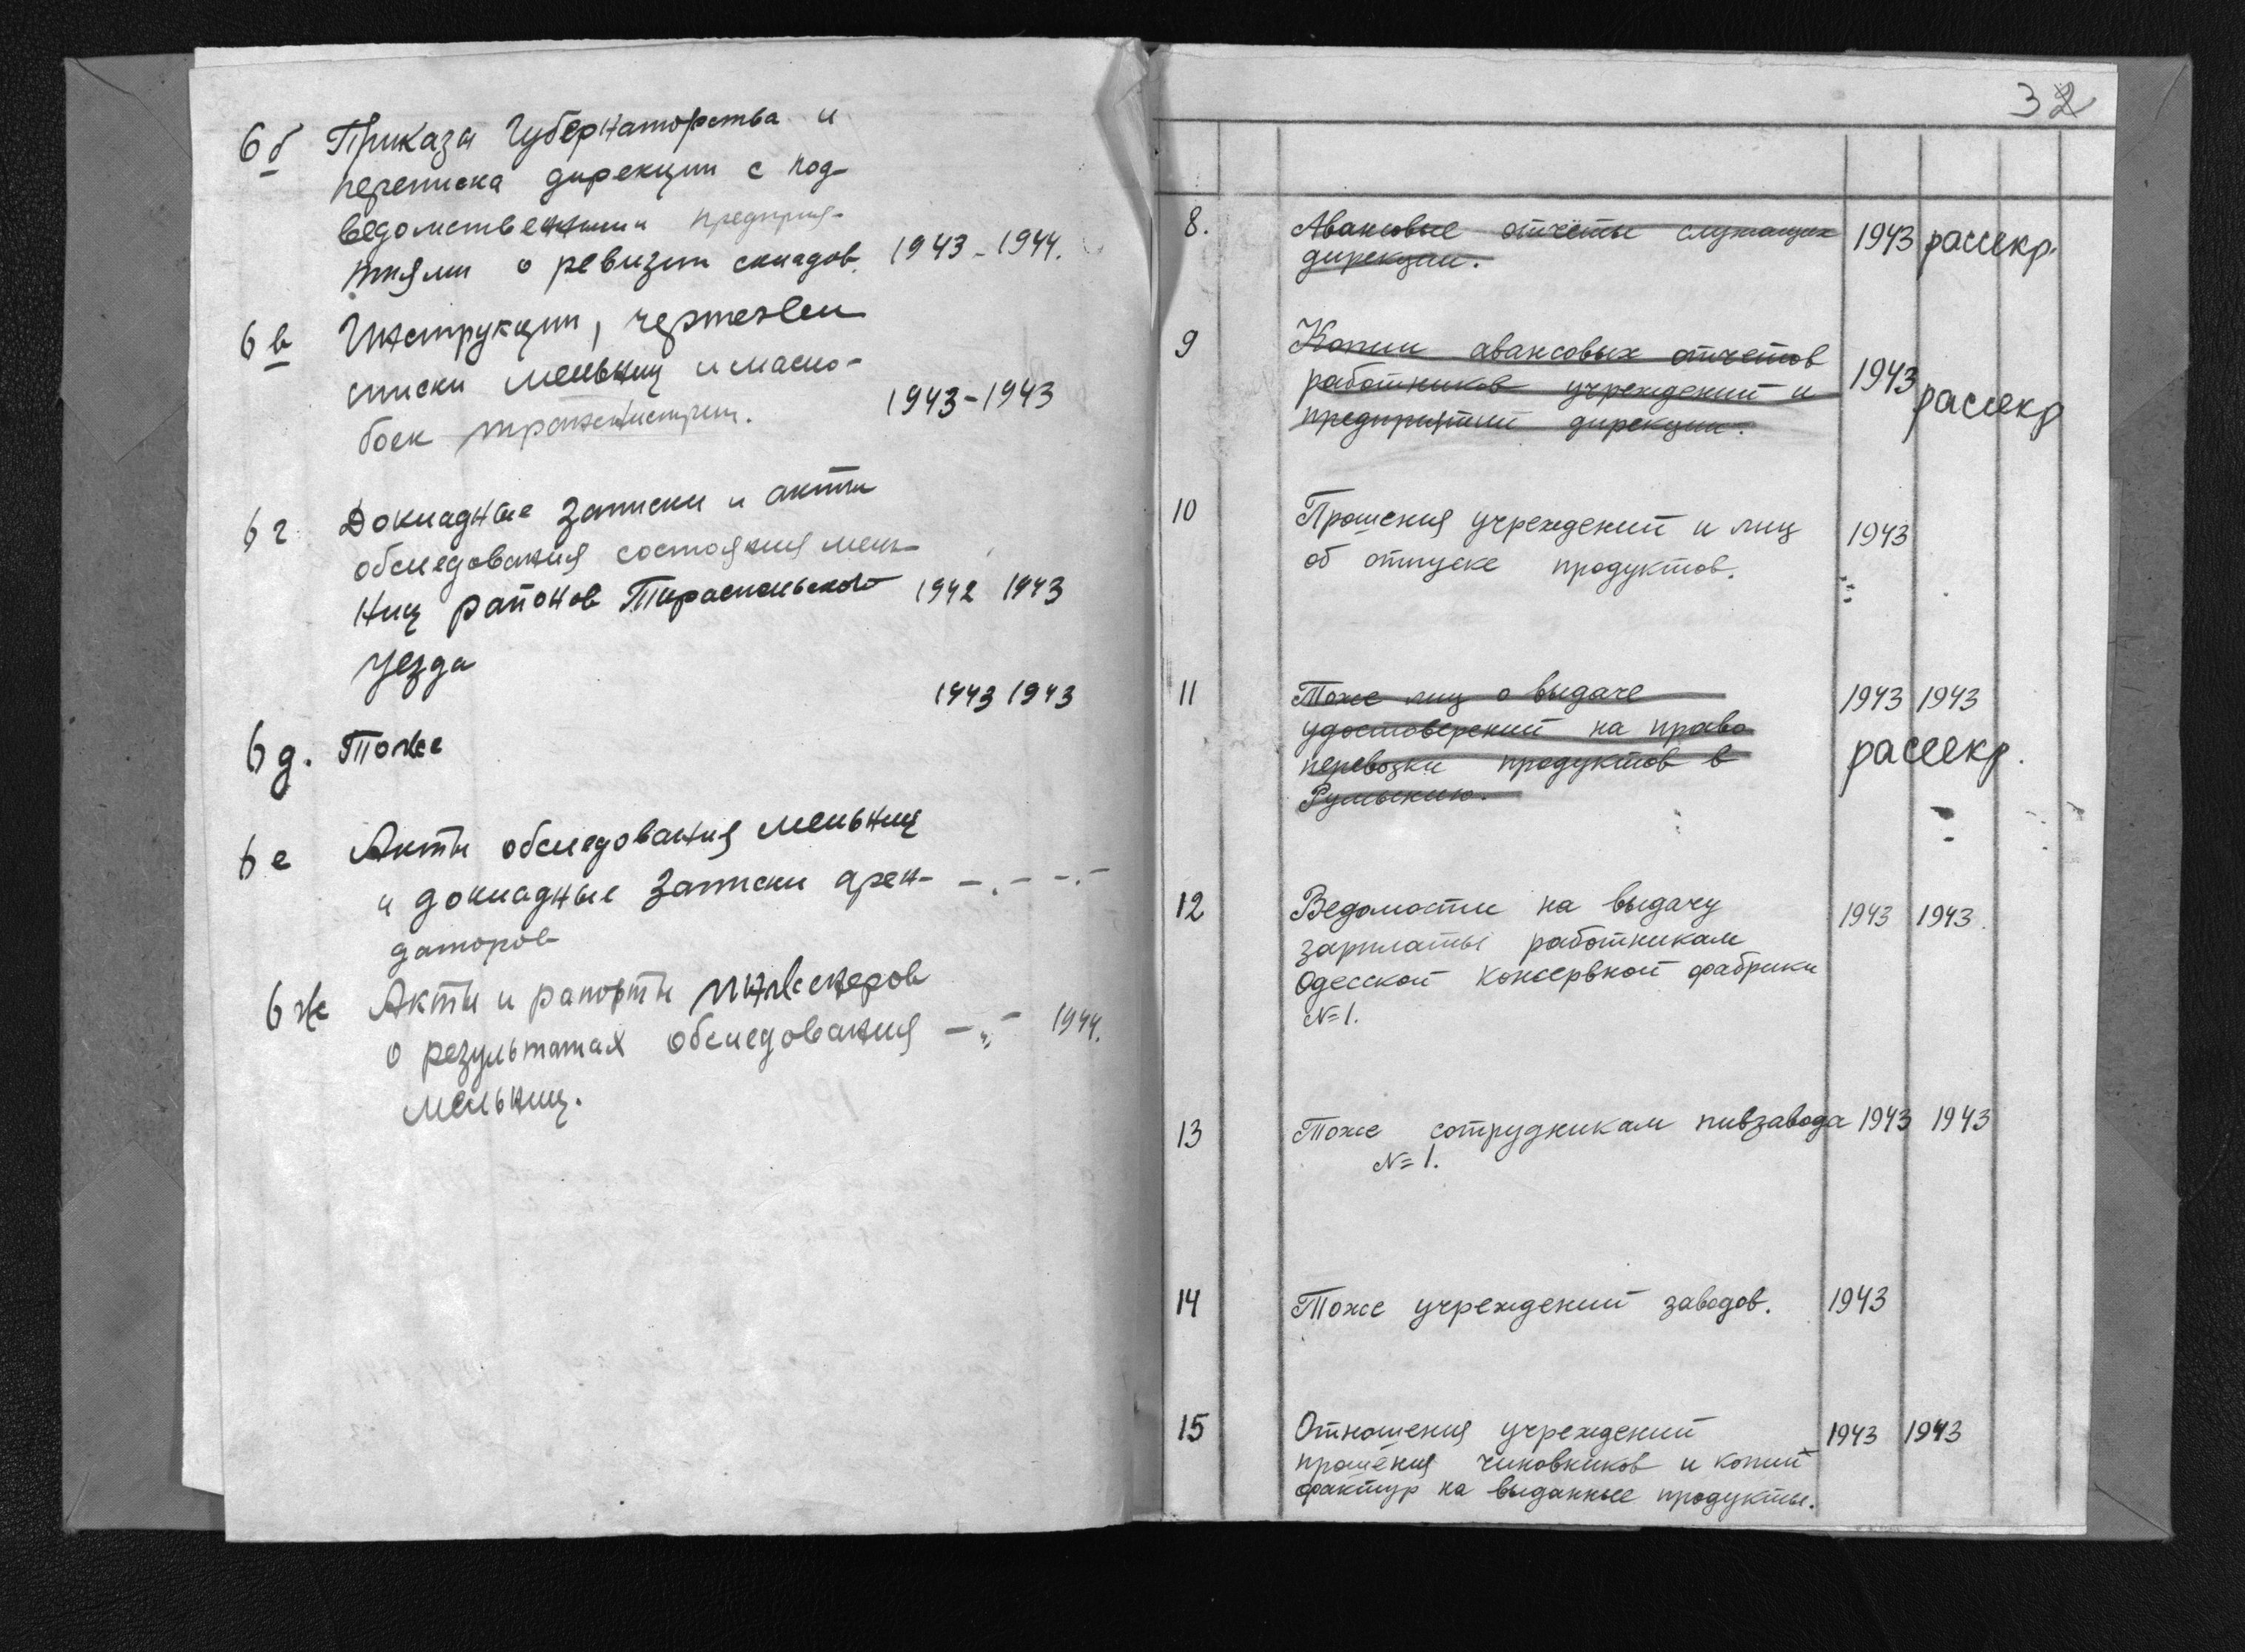 6б Приказы Губернаторства и
переписка дирекции с под-
ведомственными предприя-
тиями о ревизии складов. 1943-1944.
6в Инструкции, чертежи
списки мельниц и масло-
боек Транснистрии. 1943-1943
6г Докладные записки и акты
обследования состояния мель-
ниц районов Тираспольского 1942 1943
уезда
1943 1943
6д. Тоже
6е Акты обследования мельниц
и докладные записки арен- -.- -.-
даторов
6ж Акты и рапорты инженеров
о результатах обследования -"- 1944.
мельниц.
32
8. Авансовые отчёты служащих 1943 рассекр.
дирекции.
9 Копии авансовых отчетов
работников учреждений и 1943
предприятий дирекции. рассекр
10 Прошения учреждений и лиц 1943
об отпуске продуктов.
11 Тоже лиц о выдаче 1943 1943
удостоверений на право
перевозки продуктов в рассекр.
Румынию.
12 Ведомости на выдачу 1943 1943.
зарплаты работникам
Одесской консервной фабрики
№1.
13 Тоже сотрудникам пивзавода 1943 1943
№1.
14 Тоже учреждений заводов. 1943
15 Отношения учреждений 1943 1943
прошения чиновников и копий
фактур на выданные продукты.